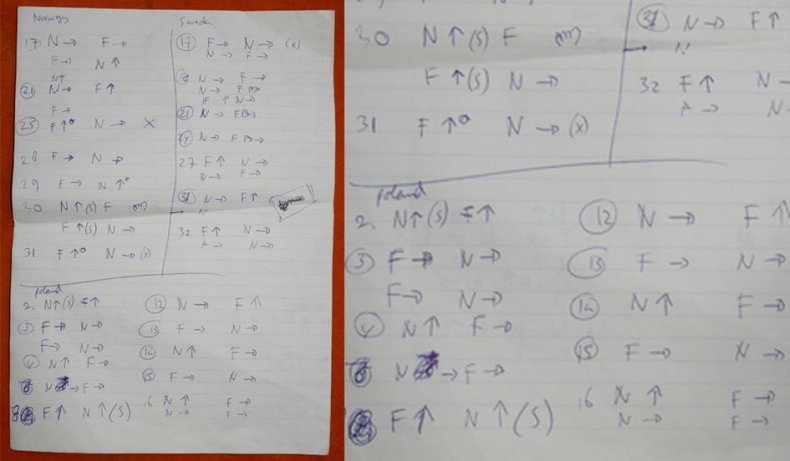 Norway
17 N → F →
F → N ↑
N↑
21 N → F ↑
F →
25 F ↑° N → X
28 F → N →
29 F → N ↑°
30 N ↑ (S) F (m)
F ↑ (S) N →
31 F ↑° N → (x)
Sweden
17 F → N → (x)
N → F →
18 N → F →
N → F →
F ↑ N →
21 N → F →
24 N → F →
27 F ↑ N →
N → F →
31 N → F ↑
N
32 F ↑ N →
N →
Poland
2. N↑(S) F↑
3 F → N →
F → N →
4 N ↑ F →
8 N → F →
F ↑ N ↑ (S)
12 N → F ↑
13 F → N →
14 N ↑ F →
15 F → N →
16 N ↑ F →
N → F →
30 N ↑ (S) F (m)
F ↑ (S) N →
31 F ↑° N → (x)
31 N → F ↑
N
32 F ↑ N -
→ N
Poland
2. N↑(S) F↑
3 F → N →
F → N →
4 N ↑ F →
8 N → F →
F ↑ N ↑ (S)
12 N → F ↑
13 F → N →
14 N ↑ F →
15 F → N →
16 N ↑ F →
N → F →